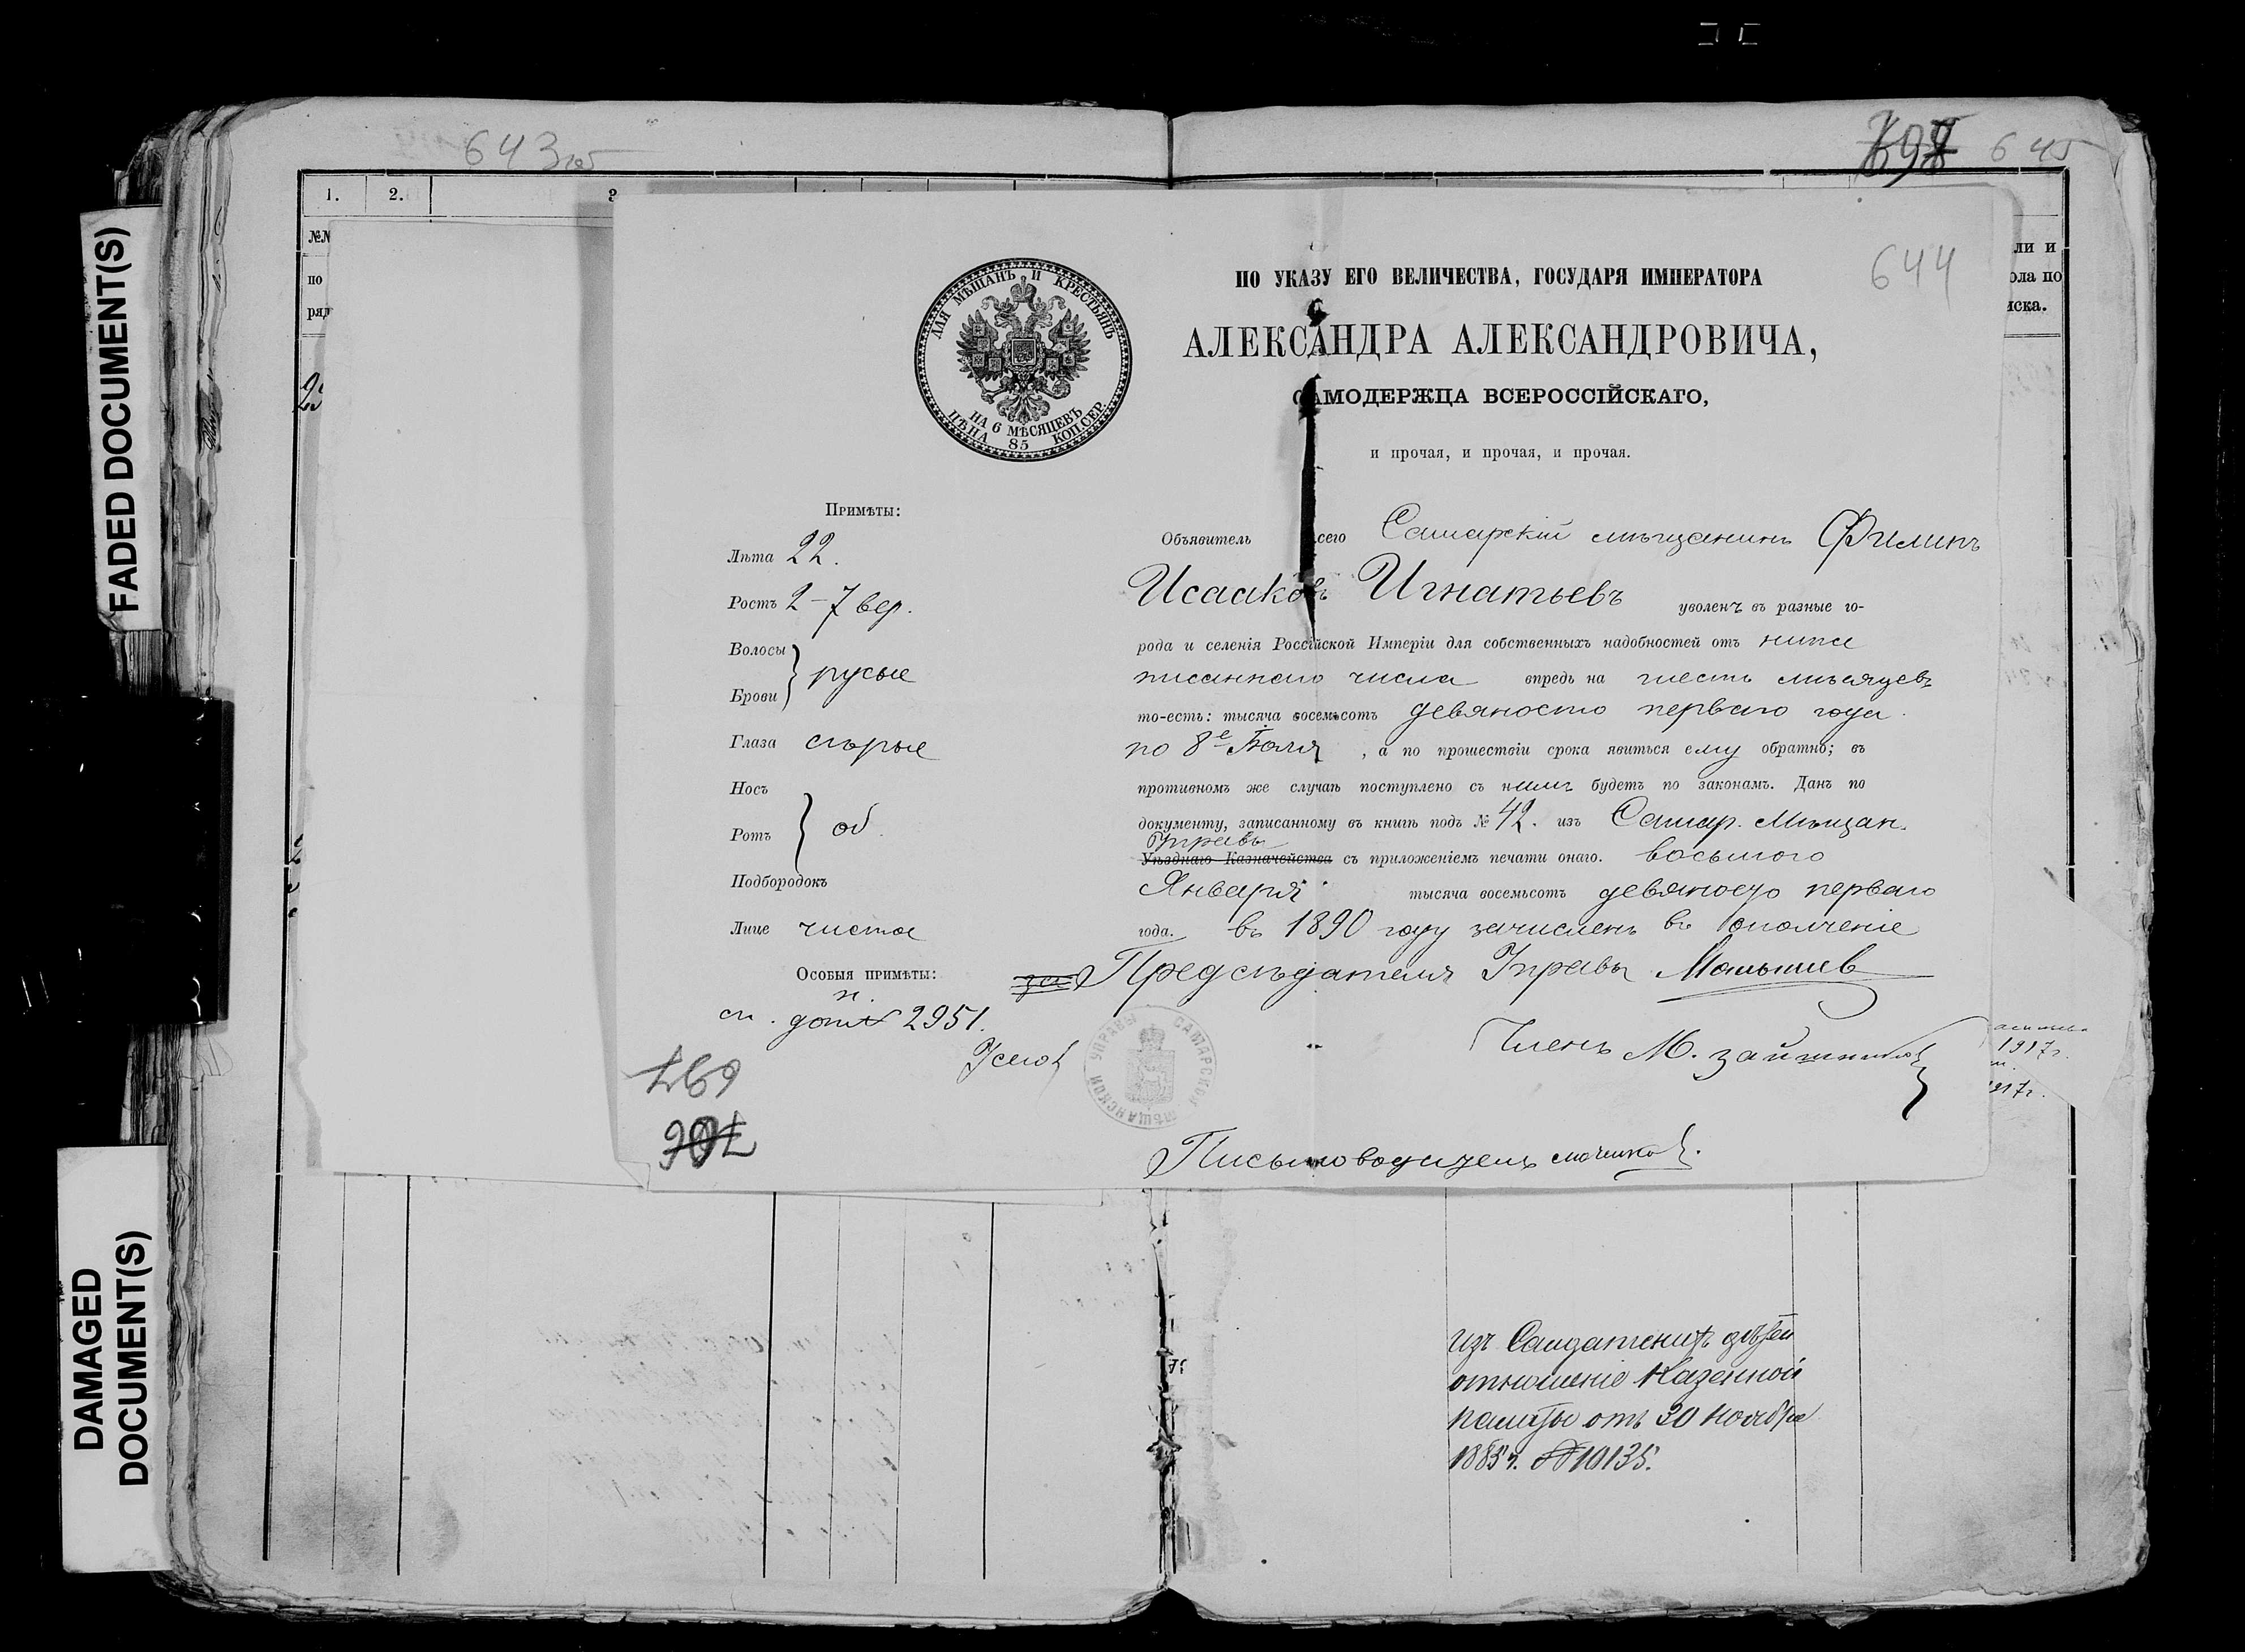 FADED DOCUMENT(S)
DAMAGED
DOCUMENT(S)
643об
698
645
1.
2.
3
№№
по
ряд
25
ли и
ола по
иска.
644
ДЛЯ МѢЩАНЪ И КРЕСТЬЯНЪ
НА 6 МѢСЯЦЕВЪ
ЦѢНА 85 КОП.СЕР.
ПО УКАЗУ ЕГО ВЕЛИЧЕСТВА, ГОСУДАРЯ ИМПЕРАТОРА
АЛЕКСАНДРА АЛЕКСАНДРОВИЧА,
САМОДЕРЖЦА ВСЕРОССІЙСКАГО,
и прочая, и прочая, и прочая.
Примѣты:
Лѣта 22.
Ростъ 2-7 вер.
Волосы
Брови
русые
Глаза сѣрые
Носъ
Ротъ
об.
Подбородокъ
Лице чистое
Особыя примѣты:
2951.
697
707
Объявитель сего Самарскій мѣщанинъ Филипъ
Исааковъ Игнатьевъ уволенъ въ разные го-
рода и селенія Россійской Имперіи для собственныхъ надобностей отъ ниже
писаннаго числа впредь на шесть мѣсяцевъ
то-есть: тысяча восемьсотъ девяносто перваго года
по 8е Іюля, а по прошествіи срока явиться ему обратно; въ
противномъ же случаѣ поступлено съ нимъ будетъ по законамъ. Данъ по
документу, записанному въ книгѣ подъ № 42. изъ Самар. Мѣщан.
Управы
Уѣзднаго Казначейства съ приложеніемъ печати онаго. восьмого
Января тысяча восемьсотъ девяносто перваго
года. въ 1890 году зачисленъ въ ополченіе
за Предсѣдателя Управы Малышев
САМАРСКОЙ МѢЩАНСКОЙ УПРАВЫ
Членъ М.
Письмоводитель
1917г.
917г.
изъ Салдатскихъ дѣтей
отношеніе Казенной
палаты отъ 30 Ноября
1885 г. № 10135.